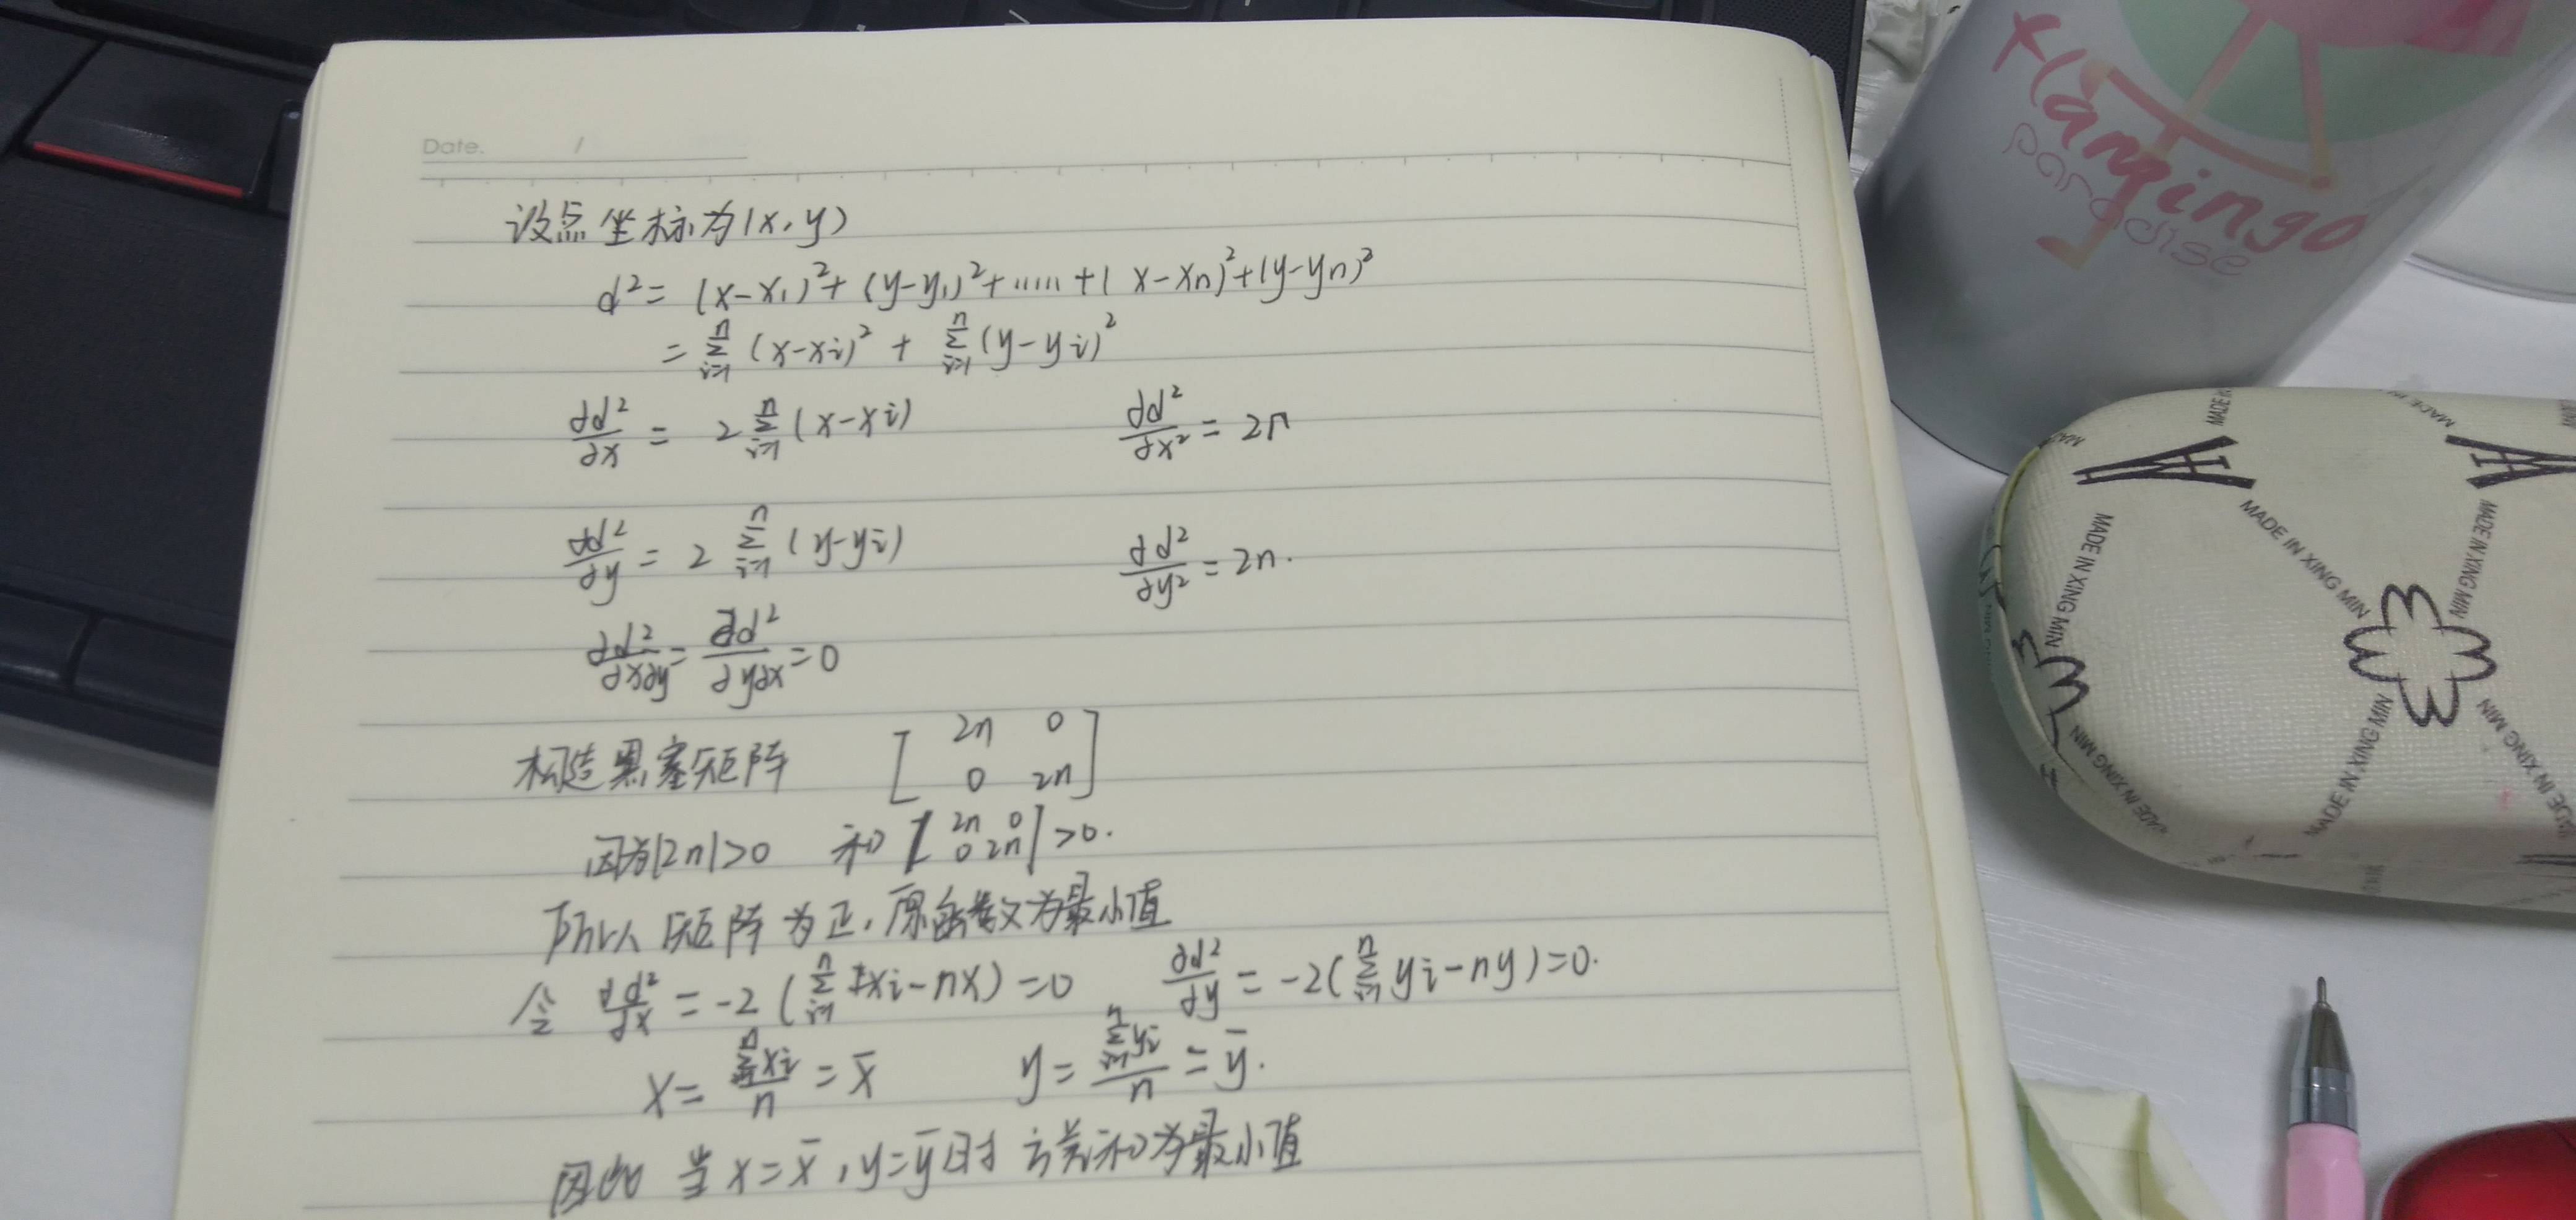 Date. /
设点坐标为(x,y)
d²= (x-x₁)²+(y-y₁)²+……+(x-xn)²+(y-yn)²
= n∑i=1 (x-xi)² + n∑i=1 (y-yi)²
∂d²/∂x = 2 n∑i=1 (x-xi) ∂d²/∂x² = 2n
∂d²/∂y = 2 n∑i=1 (y-yi) ∂d²/∂y² = 2n.
∂d²/∂x∂y = ∂d²/∂y∂x = 0
构造黑塞矩阵 [2n 0
0 2n]
因为|2n|>0 和 |2n 0
0 2n|>0.
所以矩阵为正,原函数为最小值
令 ∂d²/∂x = -2 (n∑i=1 xi-nx) =0 ∂d²/∂y = -2(n∑i=1 yi-ny)=0.
x= n∑i=1 xi/n = x̄ y= n∑i=1 yi/n = ȳ.
因此 当 x=x̄,y=ȳ时 方差和为最小值
flamingo
paradise
MADE IN XING MIN
MADE IN XING MIN
MADE IN XING MIN
MADE IN XING MIN
MADE IN XING MIN